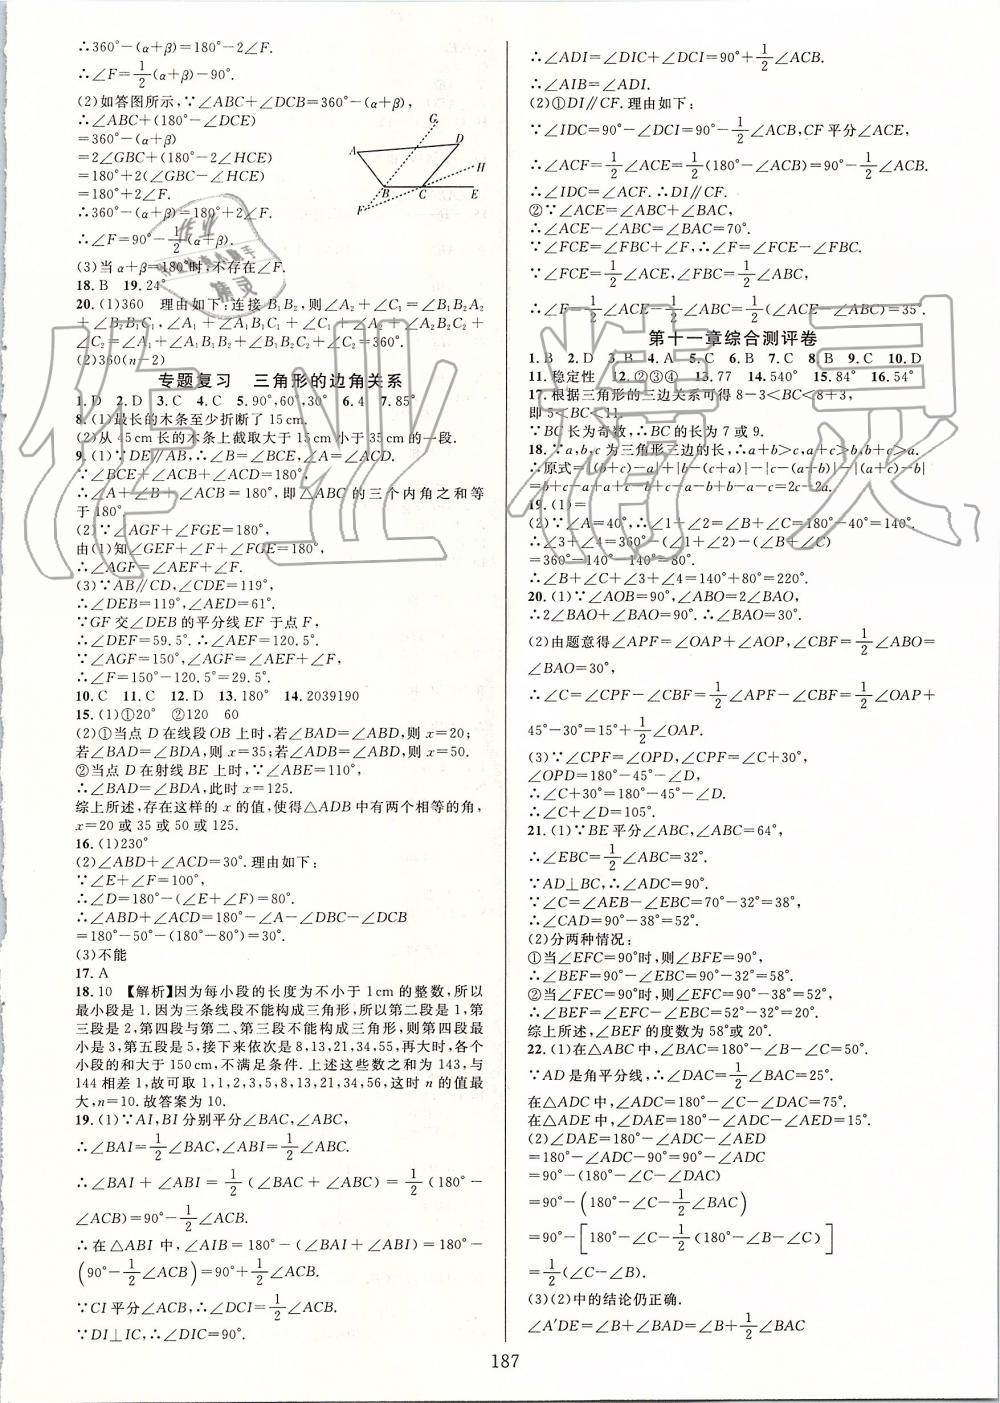 ∴360°−(α+β)=180°−2∠F.
∴∠F=1/2(α+β)−90°.
(2)如答图所示,∵∠ABC+∠DCB=360°−(α+β),
∴∠ABC+(180°−∠DCE)
=360°−(α+β)
=2∠GBC+(180°−2∠HCE)
=180°+2(∠GBC−∠HCE)
=180°+2∠F.
∴360°−(α+β)=180°+2∠F.
∴∠F=90°−1/2(α+β).
(3)当α+β=180°时,不存在∠F.
G
A
D
H
B
C
E
F
18.B 19.24°
20.(1)360 理由如下:连接B₁B₂,则∠A₂+∠C₁=∠B₁B₂A₂
+∠B₂B₁C₁,∠A₁+∠B₁+∠C₁+∠A₂+∠B₂+
∠C₂=∠A₁+∠A₁B₁C₁+∠C₁+∠A₂+∠A₂B₂C₂+
∠C₂=360°.
(2)360(n−2)
专题复习 三角形的边角关系
1.D 2.D 3.C 4.C 5.90°,60°,30° 6.4 7.85°
8.(1)最长的木条至少折断了15cm.
(2)从45cm长的木条上截取大于15cm小于35cm的一段.
9.(1)∵DE∥AB,∴∠B=∠BCE,∠A=∠ACD.
∵∠BCE+∠ACB+∠ACD=180°,
∴∠A+∠B+∠ACB=180°,即△ABC的三个内角之和等
于180°.
(2)∵∠AGF+∠FGE=180°,
由(1)知∠GEF+∠F+∠FGE=180°,
∴∠AGF=∠AEF+∠F.
(3)∵AB∥CD,∠CDE=119°,
∴∠DEB=119°,∠AED=61°.
∵GF交∠DEB的平分线EF于点F,
∴∠DEF=59.5°.∴∠AEF=120.5°.
∵∠AGF=150°,∠AGF=∠AEF+∠F,
∴∠F=150°−120.5°=29.5°.
10.C 11.C 12.D 13.180° 14.2039190
15.(1)①20° ②120 60
(2)①当点D在线段OB上时,若∠BAD=∠ABD,则x=20;
若∠BAD=∠BDA,则x=35;若∠ADB=∠ABD,则x=50.
②当点D在射线BE上时,∵∠ABE=110°,
∴∠BAD=∠BDA,此时x=125.
综上所述,存在这样的x的值,使得△ADB中有两个相等的角,
x=20或35或50或125.
16.(1)230°
(2)∠ABD+∠ACD=30°.理由如下:
∵∠E+∠F=100°,
∴∠D=180°−(∠E+∠F)=80°.
∴∠ABD+∠ACD=180°−∠A−∠DBC−∠DCB
=180°−50°−(180°−80°)=30°.
(3)不能
17.A
18.10 【解析】因为每小段的长度为不小于1cm的整数,所以
最小段是1.因为三条线段不能构成三角形,所以第二段是1,第
三段是2,第四段与第二、第三段不能构成三角形,则第四段最
小是3,第五段是5,接下来依次是8,13,21,34,55,再大时,各个
小段的和大于150cm,不满足条件.上述这些数之和为143,与
144相差1,故可取1,1,2,3,5,8,13,21,34,56,这时n的值最
大,n=10.故答案为10.
19.(1)∵AI,BI分别平分∠BAC,∠ABC,
∴∠BAI=1/2∠BAC,∠ABI=1/2∠ABC.
∴∠BAI+∠ABI=1/2(∠BAC+∠ABC)=1/2(180°−
∠ACB)=90°−1/2∠ACB.
∴在△ABI中,∠AIB=180°−(∠BAI+∠ABI)=180°−
(90°−1/2∠ACB)=90°+1/2∠ACB.
∵CI平分∠ACB,∴∠DCI=1/2∠ACB.
∵DI⊥IC,∴∠DIC=90°.
∴∠ADI=∠DIC+∠DCI=90°+1/2∠ACB.
∴∠AIB=∠ADI.
(2)①DI∥CF.理由如下:
∵∠IDC=90°−∠DCI=90°−1/2∠ACB,CF平分∠ACE,
∴∠ACF=1/2∠ACE=1/2(180°−∠ACB)=90°−1/2∠ACB.
∴∠IDC=∠ACF.∴DI∥CF.
②∵∠ACE=∠ABC+∠BAC,
∴∠ACE−∠ABC=∠BAC=70°.
∵∠FCE=∠FBC+∠F,∴∠F=∠FCE−∠FBC.
∵∠FCE=1/2∠ACE,∠FBC=1/2∠ABC,
∴∠F=1/2∠ACE−1/2∠ABC=1/2(∠ACE−∠ABC)=35°.
第十一章综合测评卷
1.B 2.D 3.B 4.A 5.C 6.B 7.C 8.B 9.C 10.D
11.稳定性 12.②③④ 13.77 14.540° 15.84° 16.54°
17.根据三角形的三边关系可得8−3<BC<8+3,
即5<BC<11.
∵BC长为奇数,∴BC的长为7或9.
18.∵a,b,c为三角形三边的长,∴a+b>c,a+c>b,b+c>a.
∴原式=|(b+c)−a|+|b−(c+a)|−|c−(a+b)|−|(a+c)−b|
=b+c−a+a+c−b+c−a−b+b−a−c=2c−2a.
19.(1)=
(2)∵∠A=40°,∴∠1+∠2=∠B+∠C=180°−40°=140°.
∴∠3+∠4=360°−(∠1+∠2)−(∠B+∠C)
=360°−140°−140°=80°.
∴∠B+∠C+∠3+∠4=140°+80°=220°.
20.(1)∵∠AOB=90°,∠ABO=2∠BAO,
∴2∠BAO+∠BAO=90°.∴∠BAO=30°.
(2)由题意得∠APF=∠OAP+∠AOP,∠CBF=1/2∠ABO=
∠BAO=30°,
∴∠C=∠CPF−∠CBF=1/2∠APF−∠CBF=1/2∠OAP+
45°−30°=15°+1/2∠OAP.
(3)∵∠CPF=∠OPD,∠CPF=∠C+30°,
∠OPD=180°−45°−∠D.
∴∠C+30°=180°−45°−∠D.
∴∠C+∠D=105°.
21.(1)∵BE平分∠ABC,∠ABC=64°,
∴∠EBC=1/2∠ABC=32°.
∵AD⊥BC,∴∠ADC=90°.
∵∠C=∠AEB−∠EBC=70°−32°=38°,
∴∠CAD=90°−38°=52°.
(2)分两种情况:
①当∠EFC=90°时,则∠BFE=90°.
∴∠BEF=90°−∠EBC=90°−32°=58°.
②当∠FEC=90°时,∠EFC=90°−38°=52°.
∴∠BEF=∠EFC−∠EBC=52°−32°=20°.
综上所述,∠BEF的度数为58°或20°.
22.(1)在△ABC中,∠BAC=180°−∠B−∠C=50°.
∵AD是角平分线,∴∠DAC=1/2∠BAC=25°.
在△ADC中,∠ADC=180°−∠C−∠DAC=75°.
在△ADE中,∠DAE=180°−∠ADC−∠AED=15°.
(2)∠DAE=180°−∠ADC−∠AED
=180°−∠ADC−90°=90°−∠ADC
=90°−(180°−∠C−∠DAC)
=90°−(180°−∠C−1/2∠BAC)
=90°−[180°−∠C−1/2(180°−∠B−∠C)]
=1/2(∠C−∠B).
(3)(2)中的结论仍正确.
∠A′DE=∠B+∠BAD=∠B+1/2∠BAC
187
作业精灵